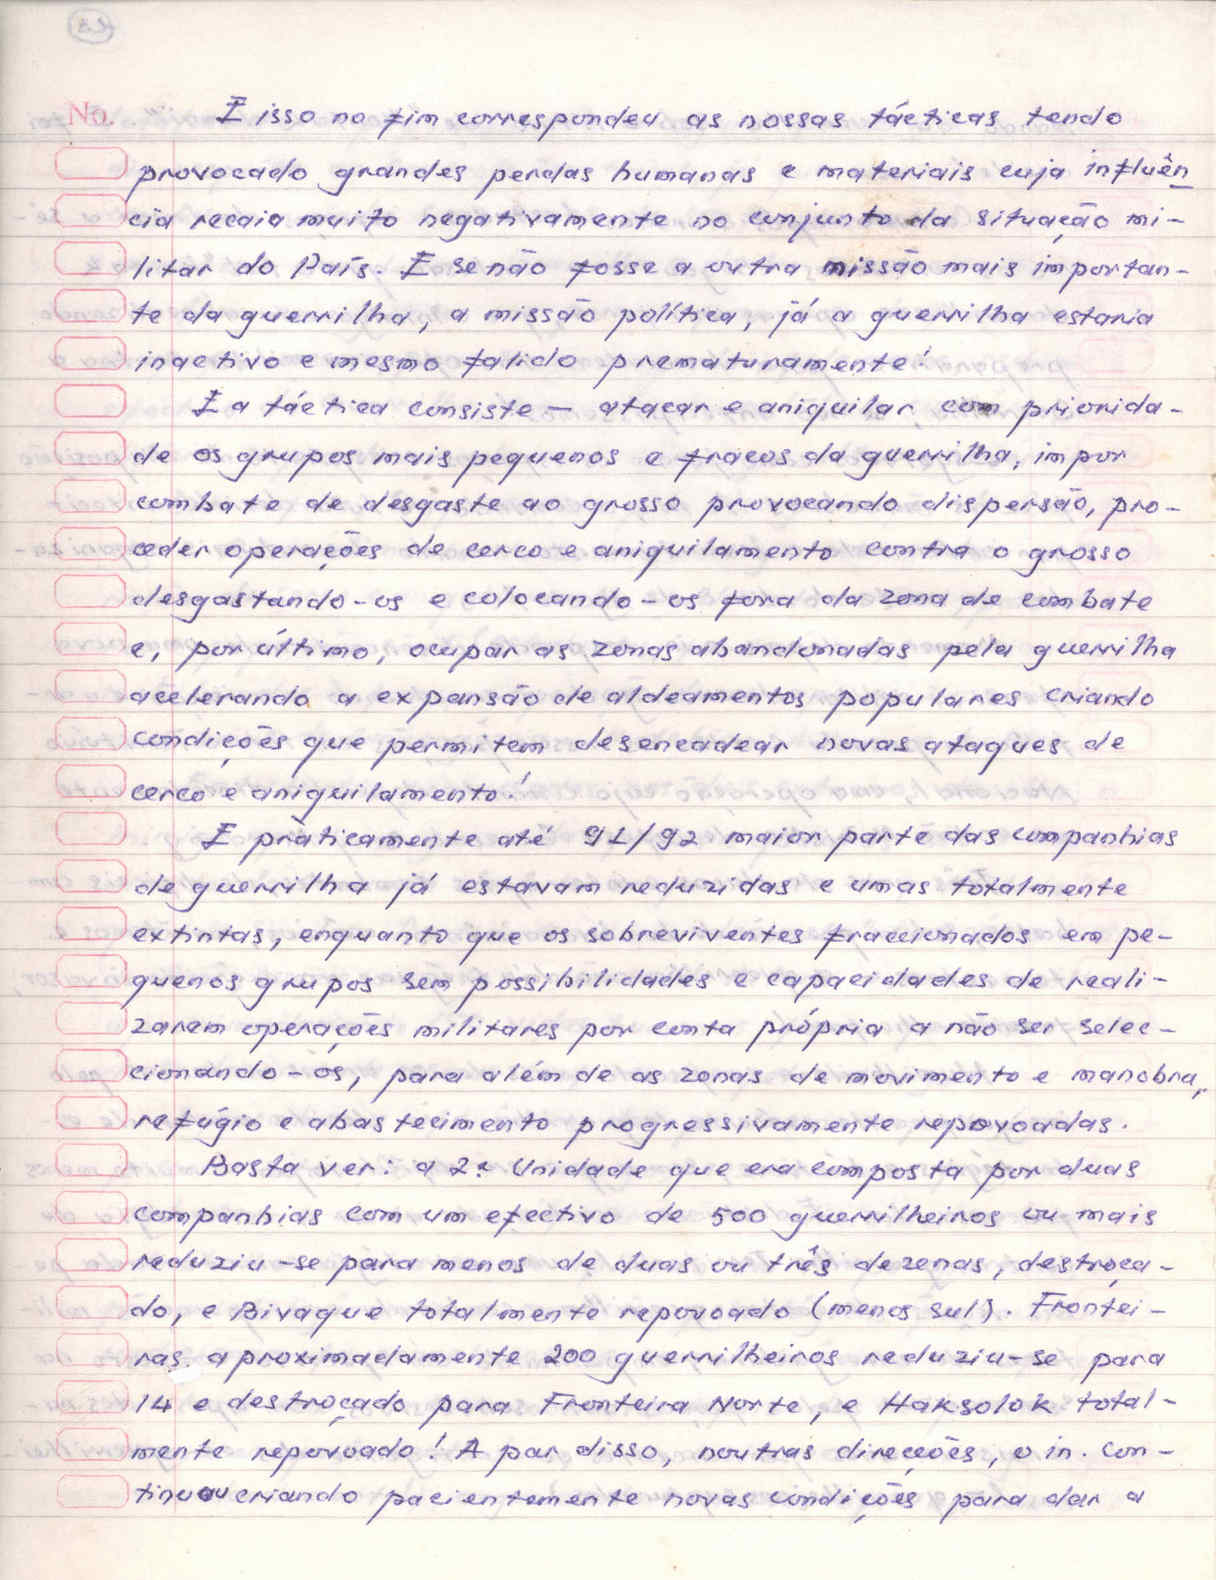 23
No.
E isso no fim correspondeu as nossas tácticas tendo
provocado grandes perdas humanas e materiais cuja influên
cia recaia muito negativamente no conjunto da situação mi-
litar do País. E se não fosse a outra missão mais importan-
te da guerrilha, a missão política, já a guerrilha estaria
inactivo e mesmo falido prematuramente!
E a táctica consiste — atacar e aniquilar, com priorida-
de os grupos mais pequenos e fracos da guerrilha, impor
combate de desgaste ao grosso provocando dispersão, pro-
ceder operações de cerco e aniquilamento contra o grosso
desgastando-os e colocando-os fora da zona de combate
e, por último, ocupar as zonas abandonadas pela guerrilha
acelerando a expansão de aldeamentos populares criando
condições que permitem desencadear novas ataques de
cerco e aniquilamento!
E práticamente até 91/92 maior parte das companhias
de guerrilha já estavam reduzidas e umas totalmente
extintas, enquanto que os sobreviventes fraccionados em pe-
quenos grupos sem possibilidades e capacidades de reali-
zarem operações militares por conta própria a não ser selec-
cionando-ós, para além de as zonas de movimento e manobra,
refúgio e abastecimento progressivamente repovoadas.
Basta ver: a 2ª Unidade que era composta por duas
companhias com um efectivo de 500 guerrilheiros ou mais
reduziu-se para menos de duas ou três dezenas, destroça-
do, e Bivaque totalmente repovoado (menos sul). Frontei-
ras aproximadamente 200 guerrilheiros reduziu-se para
14 e destroçado para Fronteira Norte, e Haksolok total-
mente repovoado! A par disso, noutras direcções, o in. con-
tinuou criando pacientemente novas condições para dar a